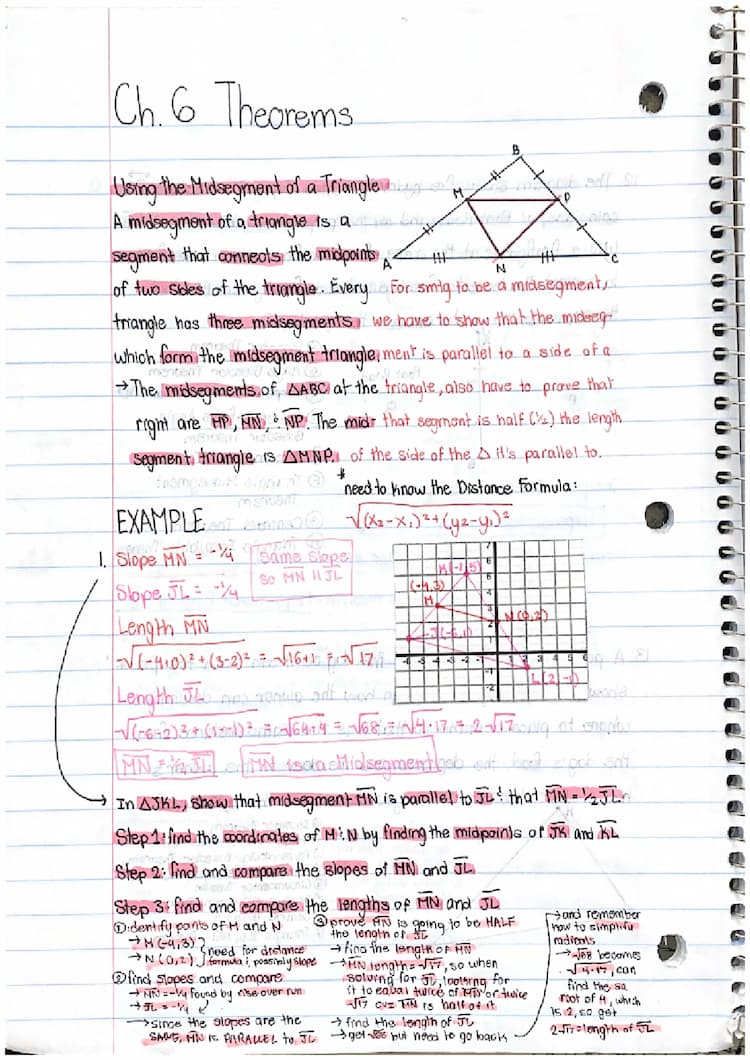 Ch. 6 Theorems
B
M
P
A
N
C
Using the Midsegment of a Triangle
A midsegment of a triangle is a
segment that connects the midpoints
of two sides of the triangle. Every
triangle has three midsegments,
which form the midsegment triangle.
→The midsegments of △ABC at the
right are MP, MN, & NP. The mid-
segment triangle is △MNP.
For smtg to be a midsegment,
we have to show that the midseg-
ment is parallel to a side of a
triangle, also have to prove that
that segment is half (1/2) the length
of the side of the △ it's parallel to.
*
need to know the Distance Formula:
√(x₂-x₁)²+(y₂-y₁)²
EXAMPLE
1. Slope MN = -1/4
Slope JL = -1/4
same slope
so MN || JL
Length MN
√(-4-0)²+(3-2)² = √16+1 = √17
Length JL
√(-6-2)²+(1--1)² = √64+4 = √68 = √4·17 = 2√17
MN = 1/2 JL
MN is a Midsegment
K(-2,5)
(-4,3)
M
N(0,2)
J(-6,1)
L(2,-1)
In △JKL, show that midsegment MN is parallel to JL & that MN = 1/2 JL.
Step 1: find the coordinates of M & N by finding the midpoints of JK and KL
Step 2: find and compare the slopes of MN and JL
Step 3: find and compare the lengths of MN and JL
① identify points of M and N
→ M(-4,3)
→ N(0,2)
need for distance
formula & possibly slope
② find slopes and compare
→ MN = -1/4 found by rise over run
→ JL = -1/4
→ since the slopes are the
SAME, MN is PARALLEL to JL
③ prove MN is going to be HALF
the length of JL
→ find the length of MN
→ MN length = √17, so when
solving for JL, looking for
it to equal twice of MN or twice
√17 cuz MN is half of it
→ find the length of JL
→ get √68 but need to go back
→ and remember
how to simplify
radicals
→ √68 becomes
√4·17, can
find the sq
root of 4, which
is 2, so get
2√17 = length of JL